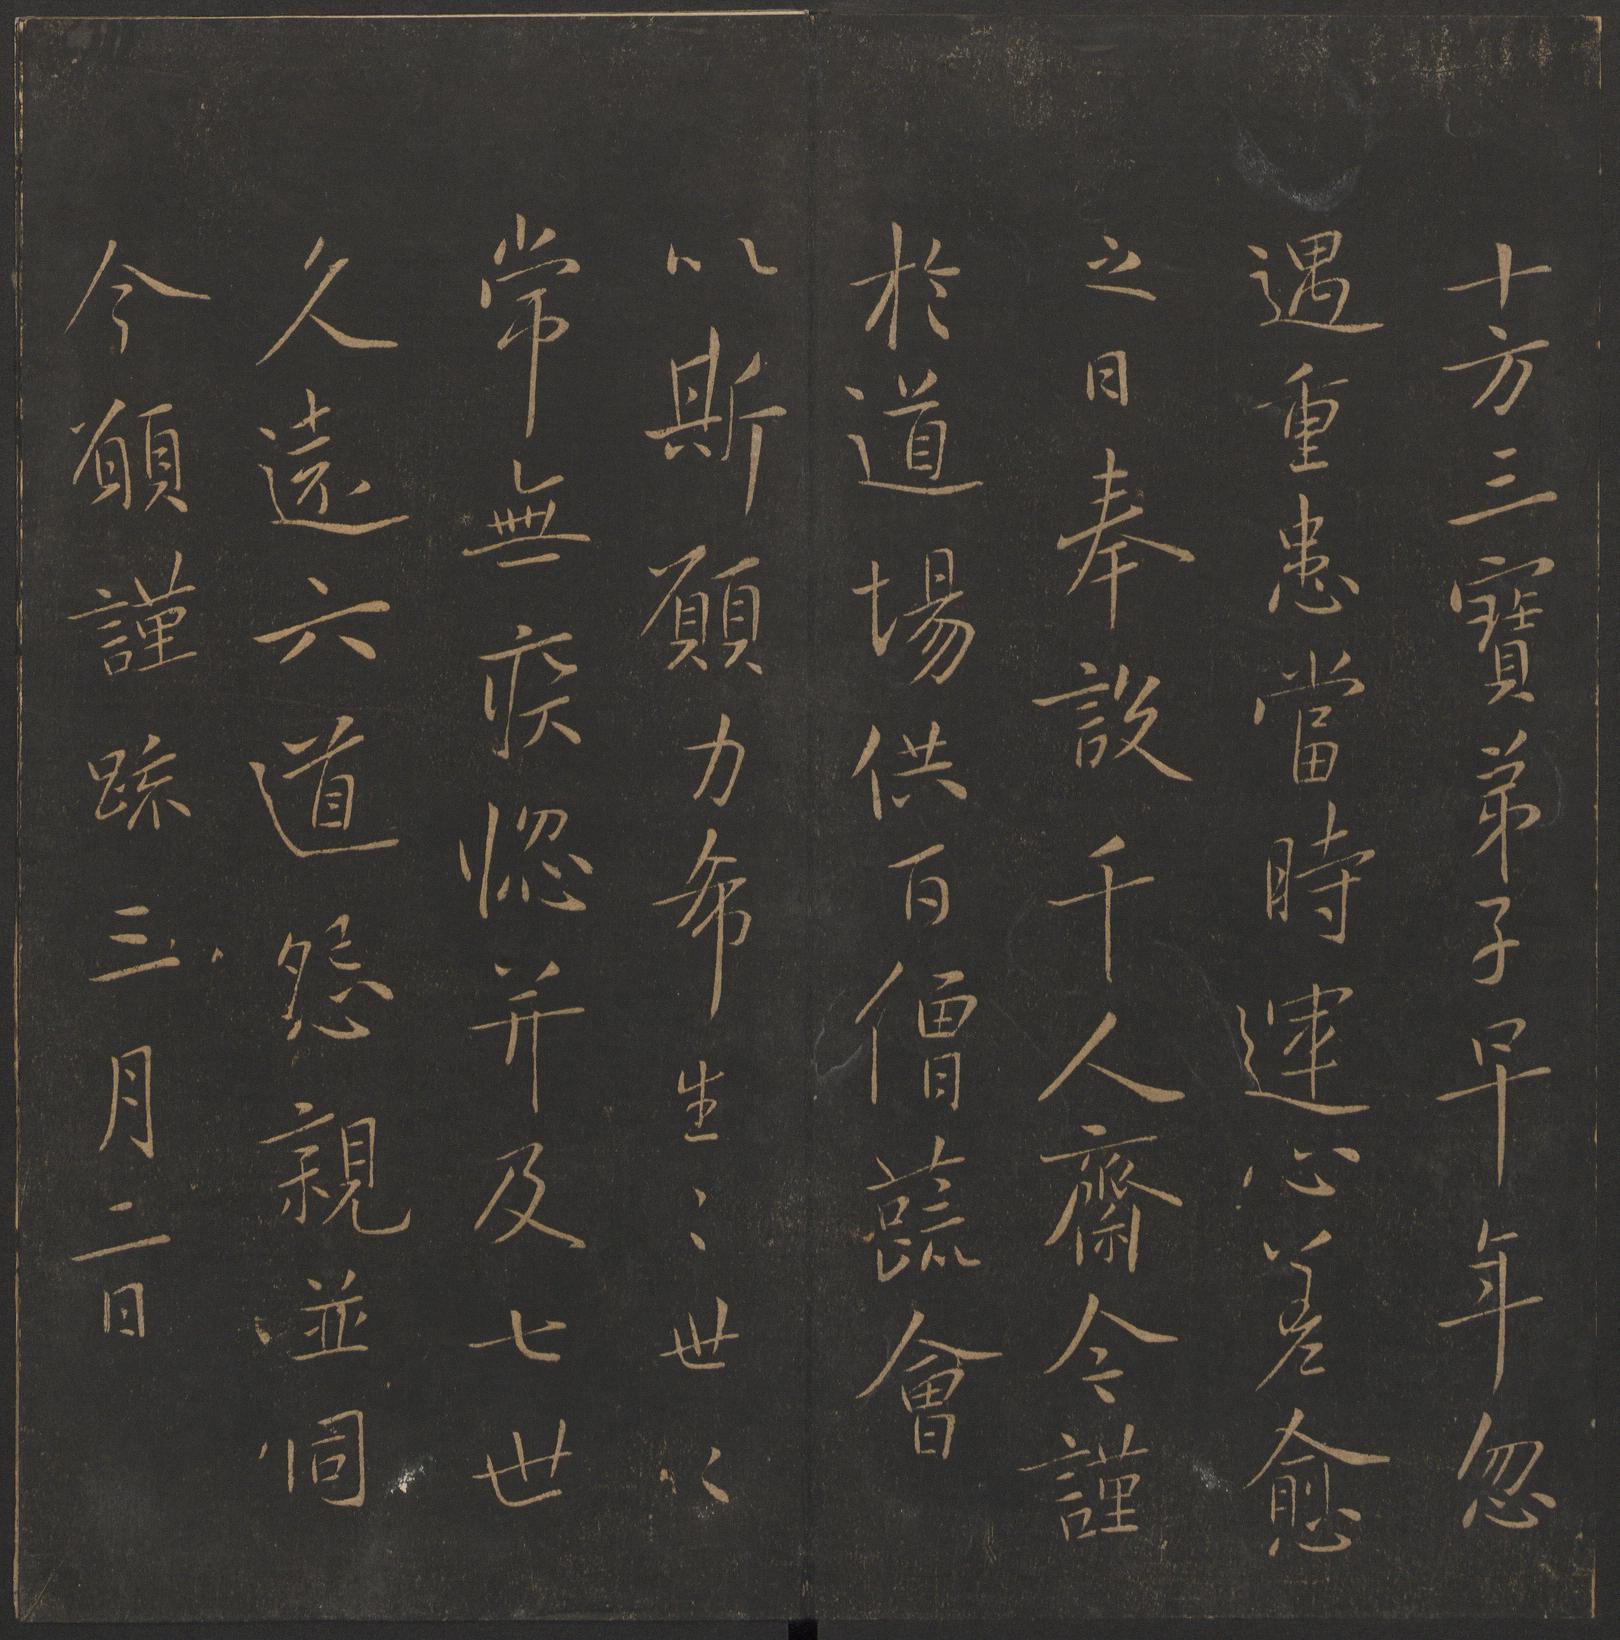 十方三寶弟子早年忽
遇重患當時運心差愈
之日奉設千人齋今謹
於道場供百僧蔬會
以斯願力希生〻世以
常無疾惱并及七世
久遠六道怨親並同
今願謹疏三月二日